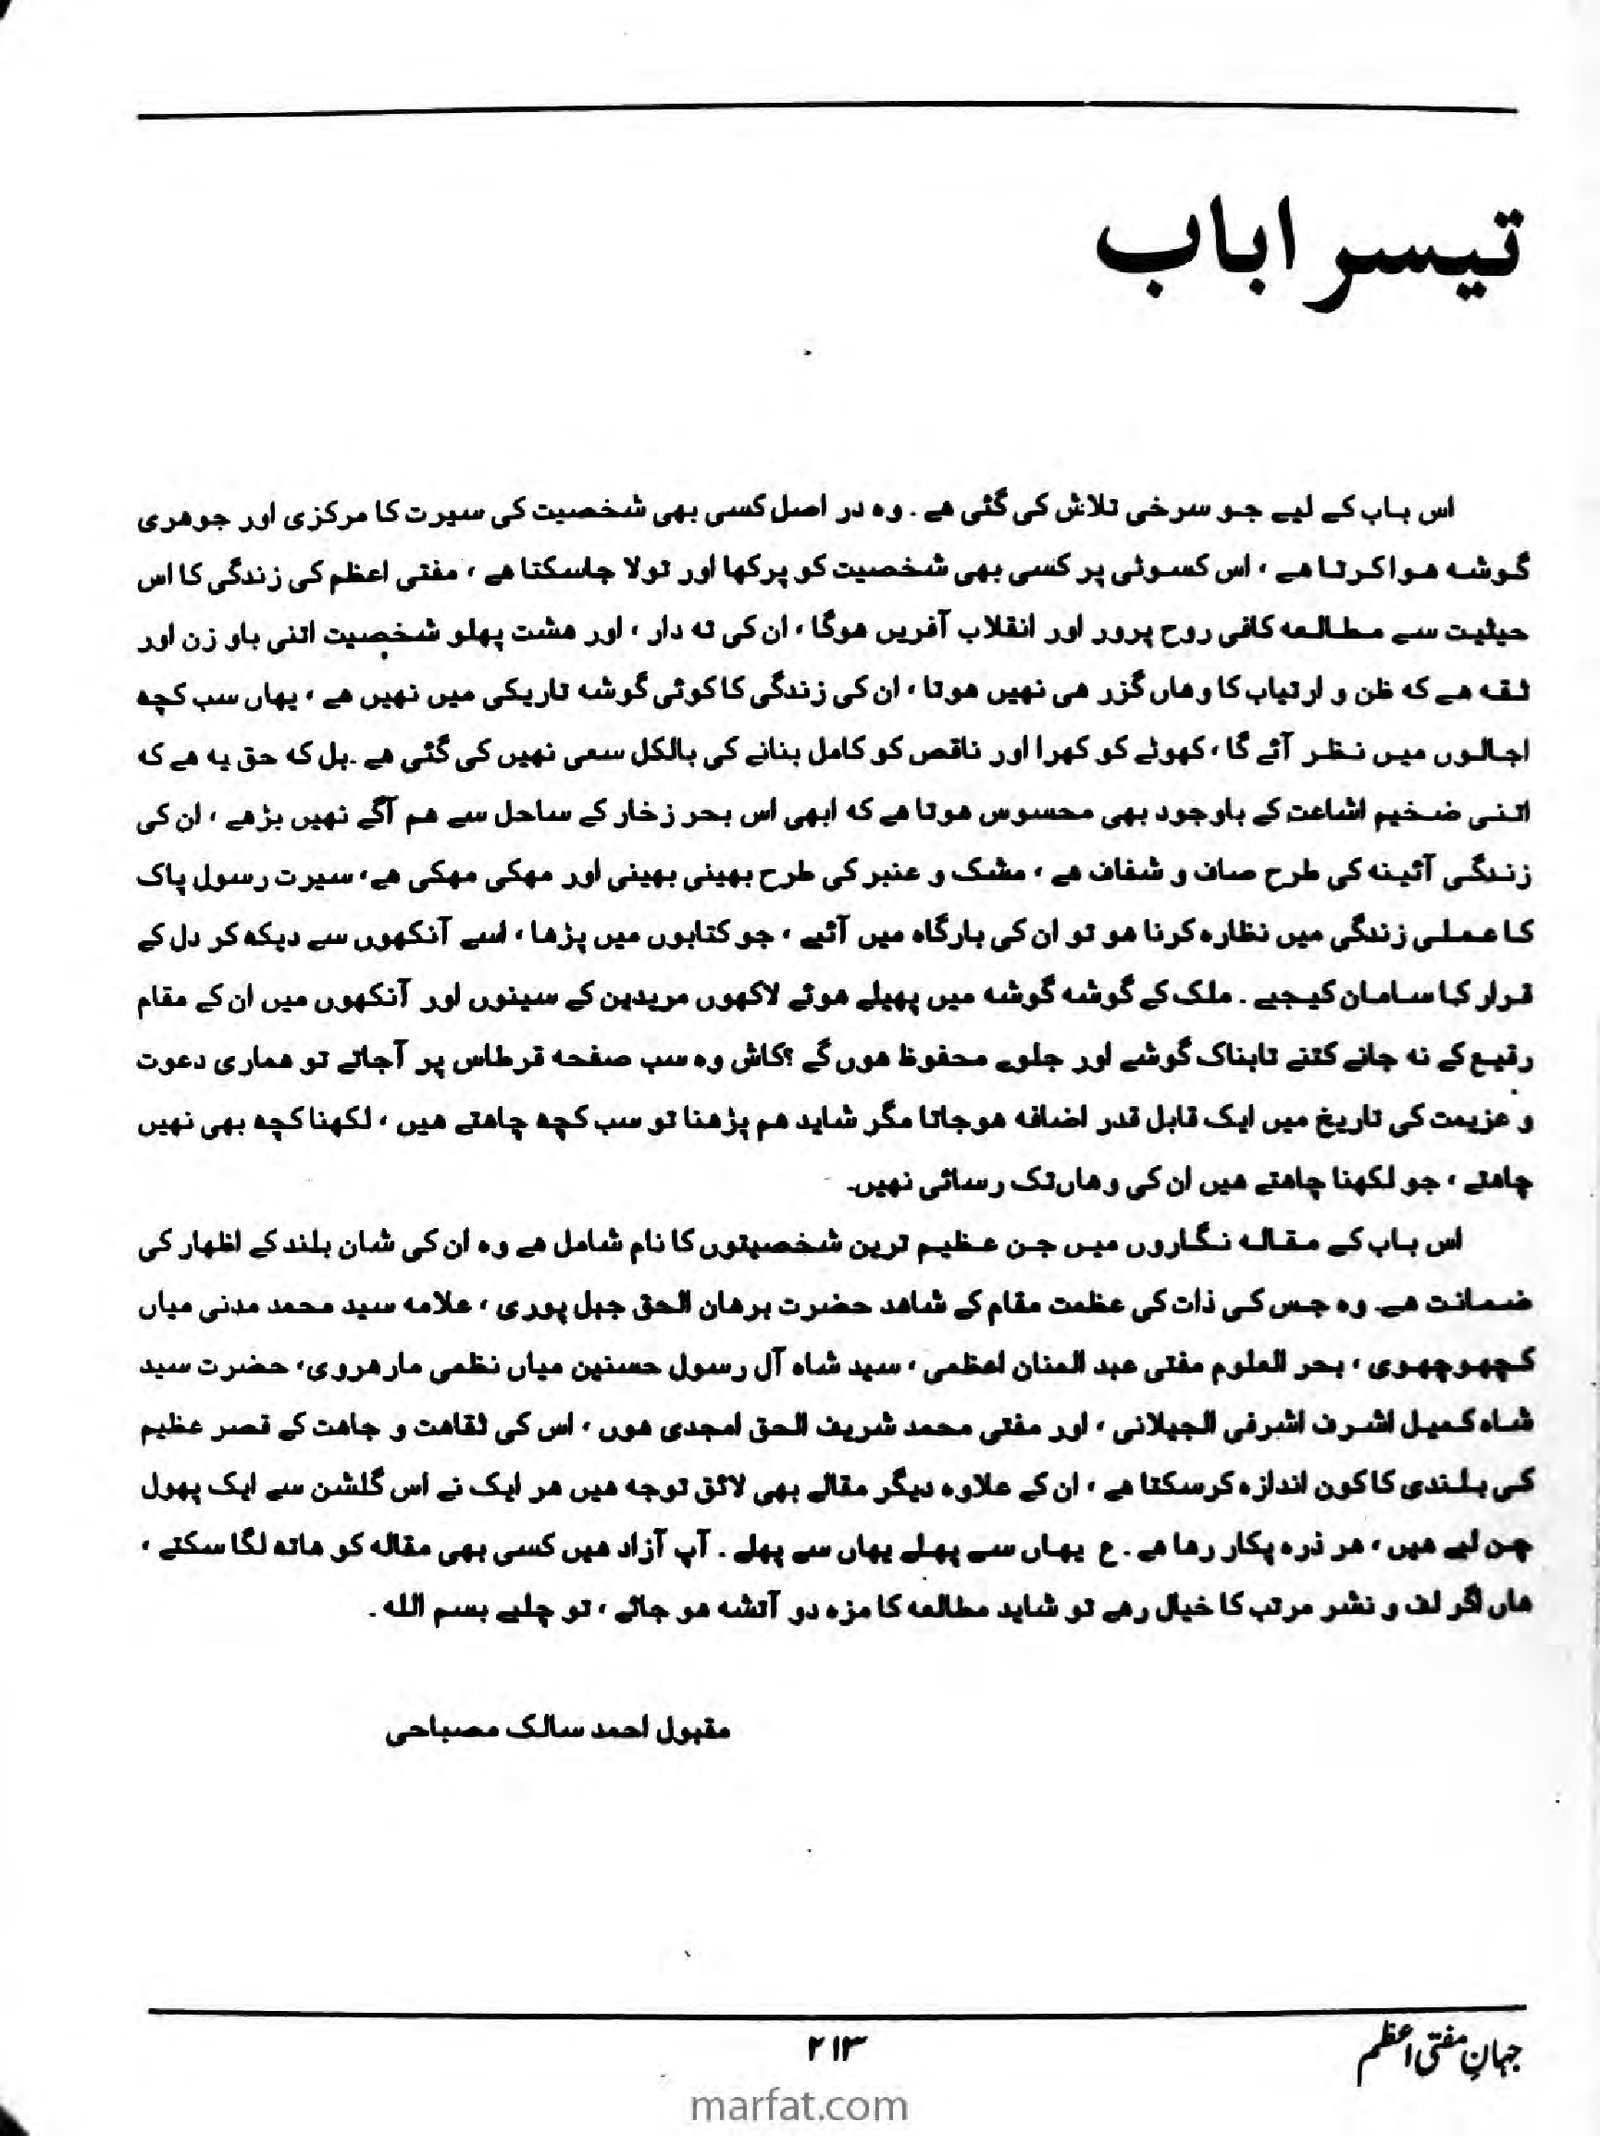 تیسرا باب
اس باب کے لیے جو سرخی تلاش کی گئی ھے ۔ وہ در اصل کسی بھی شخصیت کی سیرت کا مرکزی اور جوھری
گوشہ ھوا کرتا ھے ، اس کسوٹی پر کسی بھی شخصیت کو پرکھا اور تولا جاسکتا ھے ، مفتی اعظم کی زندگی کا اس
حیثیت سے مطالعہ کافی روح پرور اور انقلاب آفریں ھوگا ، ان کی تہ دار ، اور ھشت پھلو شخصیت اتنی باو زن اور
ثقہ ھے کہ ظن و ارتیاب کا وھاں گزر ھی نھیں ھوتا ، ان کی زندگی کا کوئی گوشہ تاریکی میں نھیں ھے ، یھاں سب کچھ
اجالوں میں نظر آئے گا ، کھوٹے کو کھرا اور ناقص کو کامل بنانے کی بالکل سعی نھیں کی گئی ھے ۔بل کہ حق یہ ھے کہ
اتنی ضخیم اشاعت کے باوجود بھی محسوس ھوتا ھے کہ ابھی اس بحر زخار کے ساحل سے ھم آگے نھیں بڑھے ، ان کی
زندگی آئینہ کی طرح صاف و شفاف ھے ، مشک و عنبر کی طرح بھینی بھینی اور مھکی مھکی ھے، سیرت رسول پاک
کا عملی زندگی میں نظارہ کرنا ھو تو ان کی بارگاہ میں آئیے ، جو کتابوں میں پڑھا ، اسے آنکھوں سے دیکھ کر دل کے
قرار کا سامان کیجیے ۔ ملک کے گوشہ گوشہ میں پھیلے ھوئے لاکھوں مریدین کے سینوں اور آنکھوں میں ان کے مقام
رفیع کے نہ جانے کتنے تابناک گوشے اور جلوے محفوظ ھوں گے ؟کاش وہ سب صفحہ قرطاس پر آجاتے تو ھماری دعوت
و عزیمت کی تاریخ میں ایک قابل قدر اضافہ ھوجاتا مگر شاید ھم پڑھنا تو سب کچھ چاھتے ھیں ، لکھنا کچھ بھی نھیں
چاھتے ، جو لکھنا چاھتے ھیں ان کی وھاں تک رسائی نھیں۔
اس باب کے مقالہ نگاروں میں جن عظیم ترین شخصیتوں کا نام شامل ھے وہ ان کی شان بلند کے اظھار کی
ضمانت ھے۔ وہ جس کی ذات کی عظمت مقام کے شاھد حضرت برھان الحق جبل پوری ، علامہ سید محمد مدنی میاں
کچھوچھوی ، بحر العلوم مفتی عبد المنان اعظمی ، سید شاہ آل رسول حسنین میاں نظمی مارھروی، حضرت سید
شاہ کمیل اشرف اشرفی الجیلانی ، اور مفتی محمد شریف الحق امجدی ھوں ، اس کی ثقاھت و جاھت کے قصر عظیم
کی بلندی کا کون اندازہ کرسکتا ھے ، ان کے علاوہ دیگر مقالے بھی لائق توجہ ھیں ھر ایک نے اس گلشن سے ایک پھول
چن لیے ھیں ، ھر ذرہ پکار رھا ھے ۔ ع یھاں سے پھلے یھاں سے پھلے ۔ آپ آزاد ھیں کسی بھی مقالہ کو ھاتھ لگا سکتے ،
ھاں اگر لف و نشر مرتب کا خیال رھے تو شاید مطالعہ کا مزہ دو آتشہ ھو جائے ، تو چلیے بسم اللہ ۔
مقبول احمد سالک مصباحی
جہانِ مفتی اعظم
۲۱۳
marfat.com